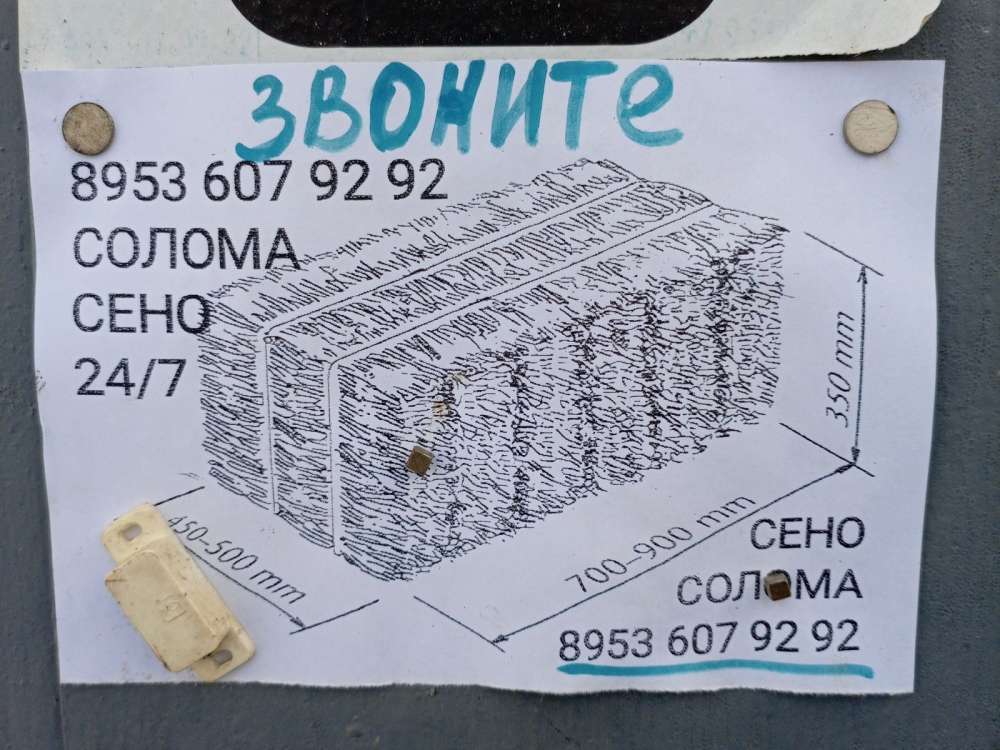 ЗВОНИТЕ
8953 607 92 92
СОЛОМА
СЕНО
24/7
350 mm
450-500 mm
700-900 mm
СЕНО
СОЛОМА
8953 607 92 92